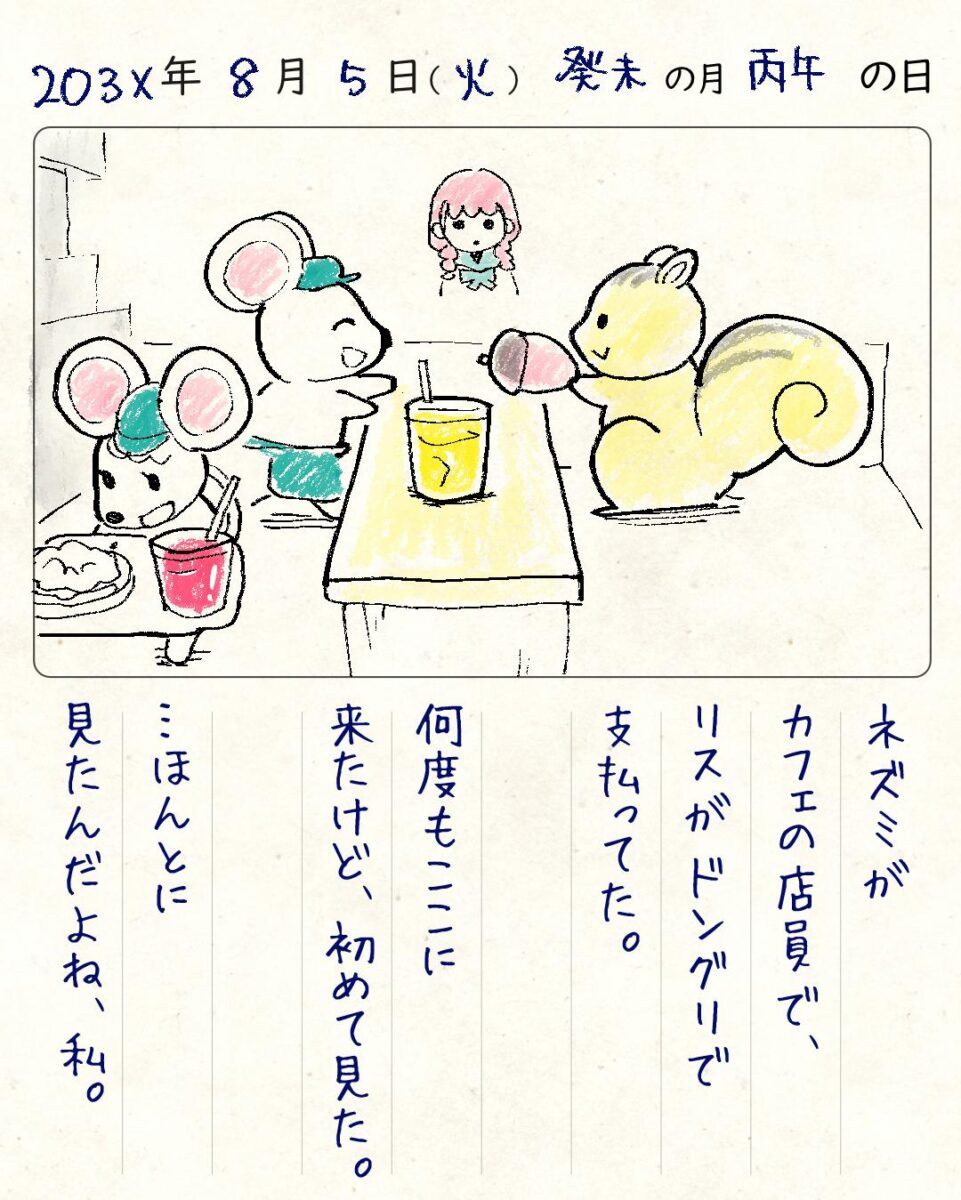 203X年 8月 5日(火) 癸未の月 丙午の日
ネズミが
カフェの店員で、
リスがドングリで
支払ってた。
何度もここに
来たけど、初めて見た。
…ほんとに
見たんだよね、私。